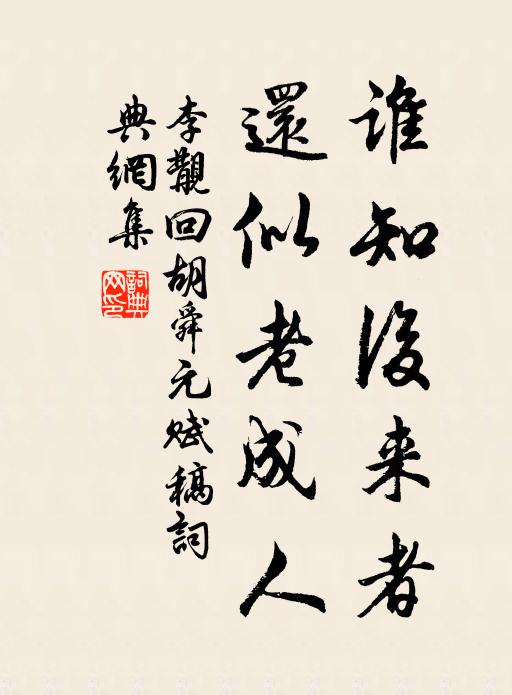 誰知後来者
還似老成人
李覯回胡舜元賦稿詞
典網集
詞典網印